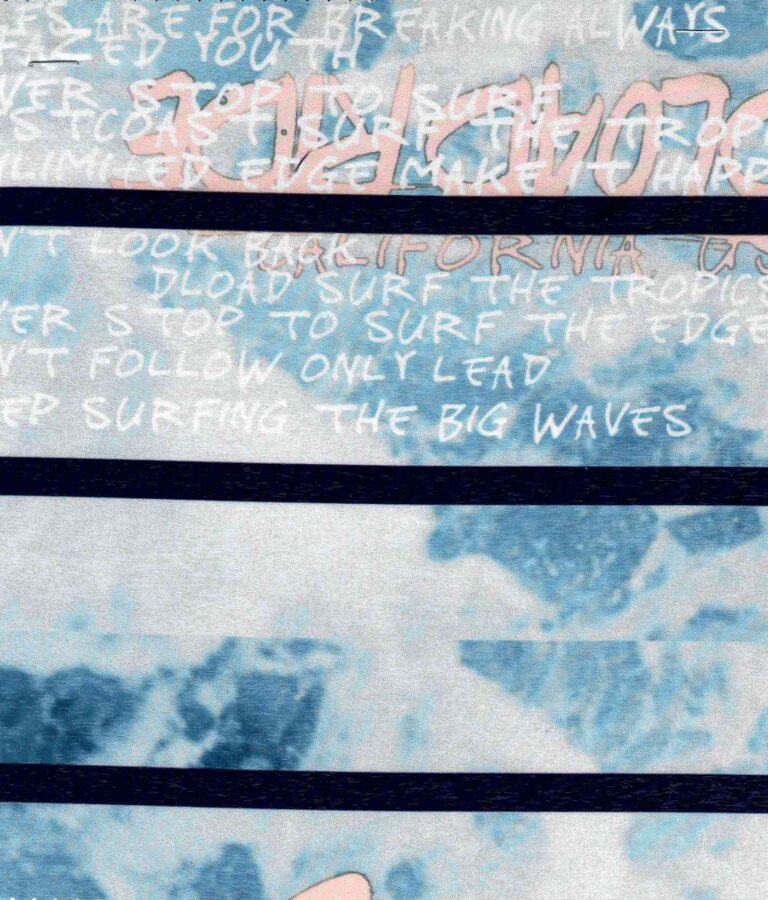 ES ARE FOR BREAKING ALWAYS
FAZED YOUTH
VER STOP TO SURF
STCOAST SURF THE TROPI
NLIMITED EDGE MAKE IT HAPP
N'T LOOK BACK
CALIFORNIA US
DLOAD SURF THE TROPICS
VER STOP TO SURF THE EDGE
N'T FOLLOW ONLY LEAD
EP SURFING THE BIG WAVES